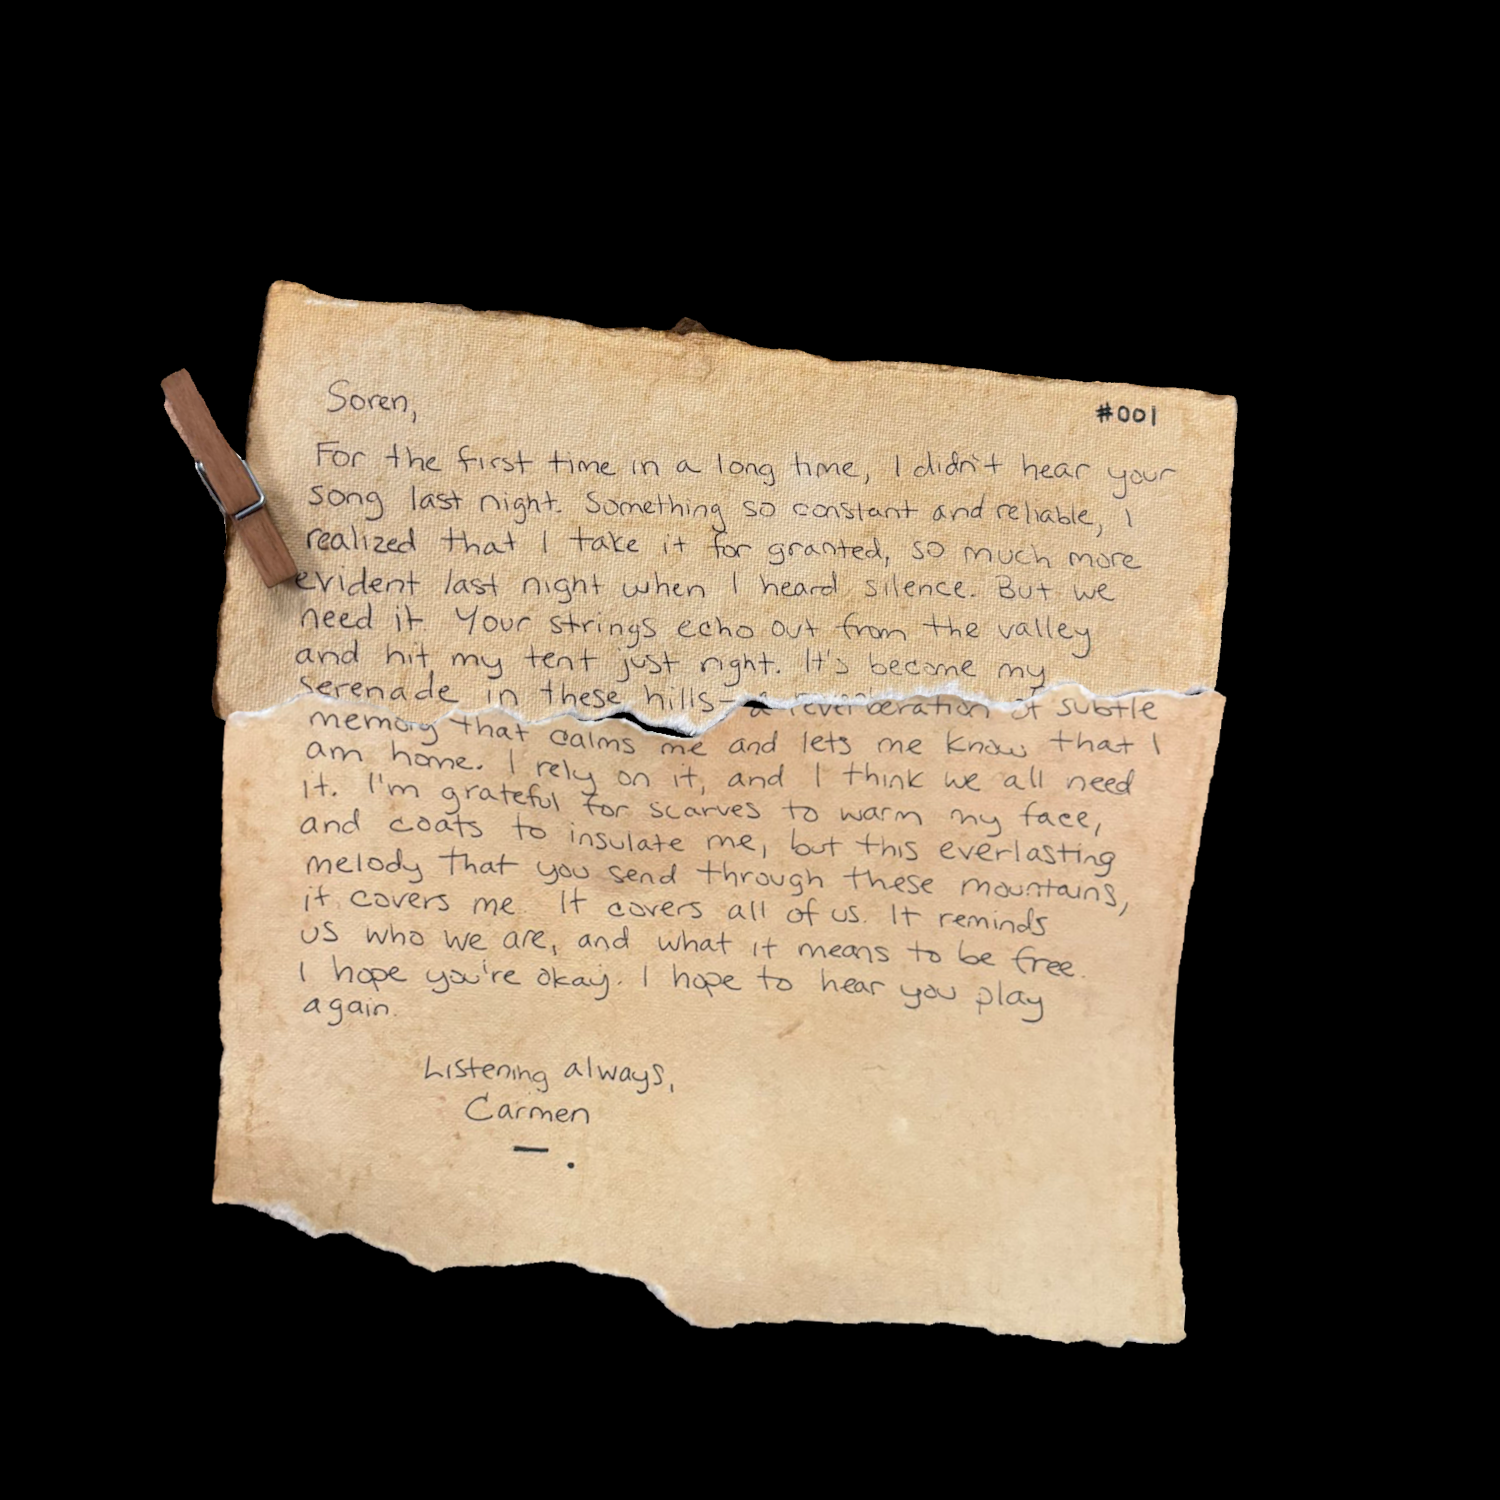 Soren,
#001
For the first time in a long time, I didn't hear your
song last night. Something so constant and reliable, I
realized that I take it for granted, so much more
evident last night when I heard silence. But we
need it. Your strings echo out from the valley
and hit my tent just right. It's become my
serenade in these hills- a reverberation of subtle
memory that calms me and lets me know that I
am home. I rely on it, and I think we all need
it. I'm grateful for scarves to warm my face,
and coats to insulate me, but this everlasting
melody that you send through these mountains,
it covers me. It covers all of us. It reminds
us who we are, and what it means to be free.
I hope you're okay. I hope to hear you play
again.
Listening always,
Carmen
— .